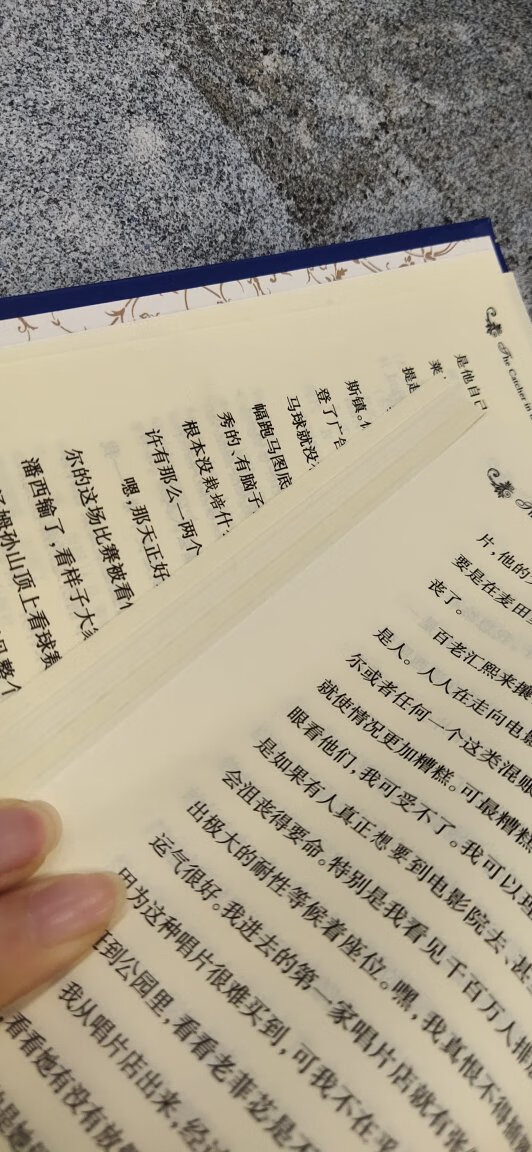 The Catcher in
是他自己
莱
提走
斯镇。
登了广告
马球就没
幅跑马图底
秀的、有脑子
根本没栽培什
许有那么一两个
嗯,那天正好
尔的这场比赛被看作
潘西输了,看样子大家
汤姆孙山顶上看球赛
见整个
片,他的
要是在麦田
丧了。
百老汇熙来攘
是人。人人在走向电影
尔或者任何一个这类混账
就使情况更加糟糕。可最糟糕
眼看他们,我可受不了。我可以理
是如果有人真正想要到电影院去、甚
会沮丧得要命。特别是我看见千百万人排
出极大的耐性等候着座位。嘿,我真恨不得插翅
运气很好。我进去的第一家唱片店就有张
因为这种唱片很难买到,可我不在乎
到公园里,看看老菲芘是不
我从唱片店出来,经过
看看她有没有放